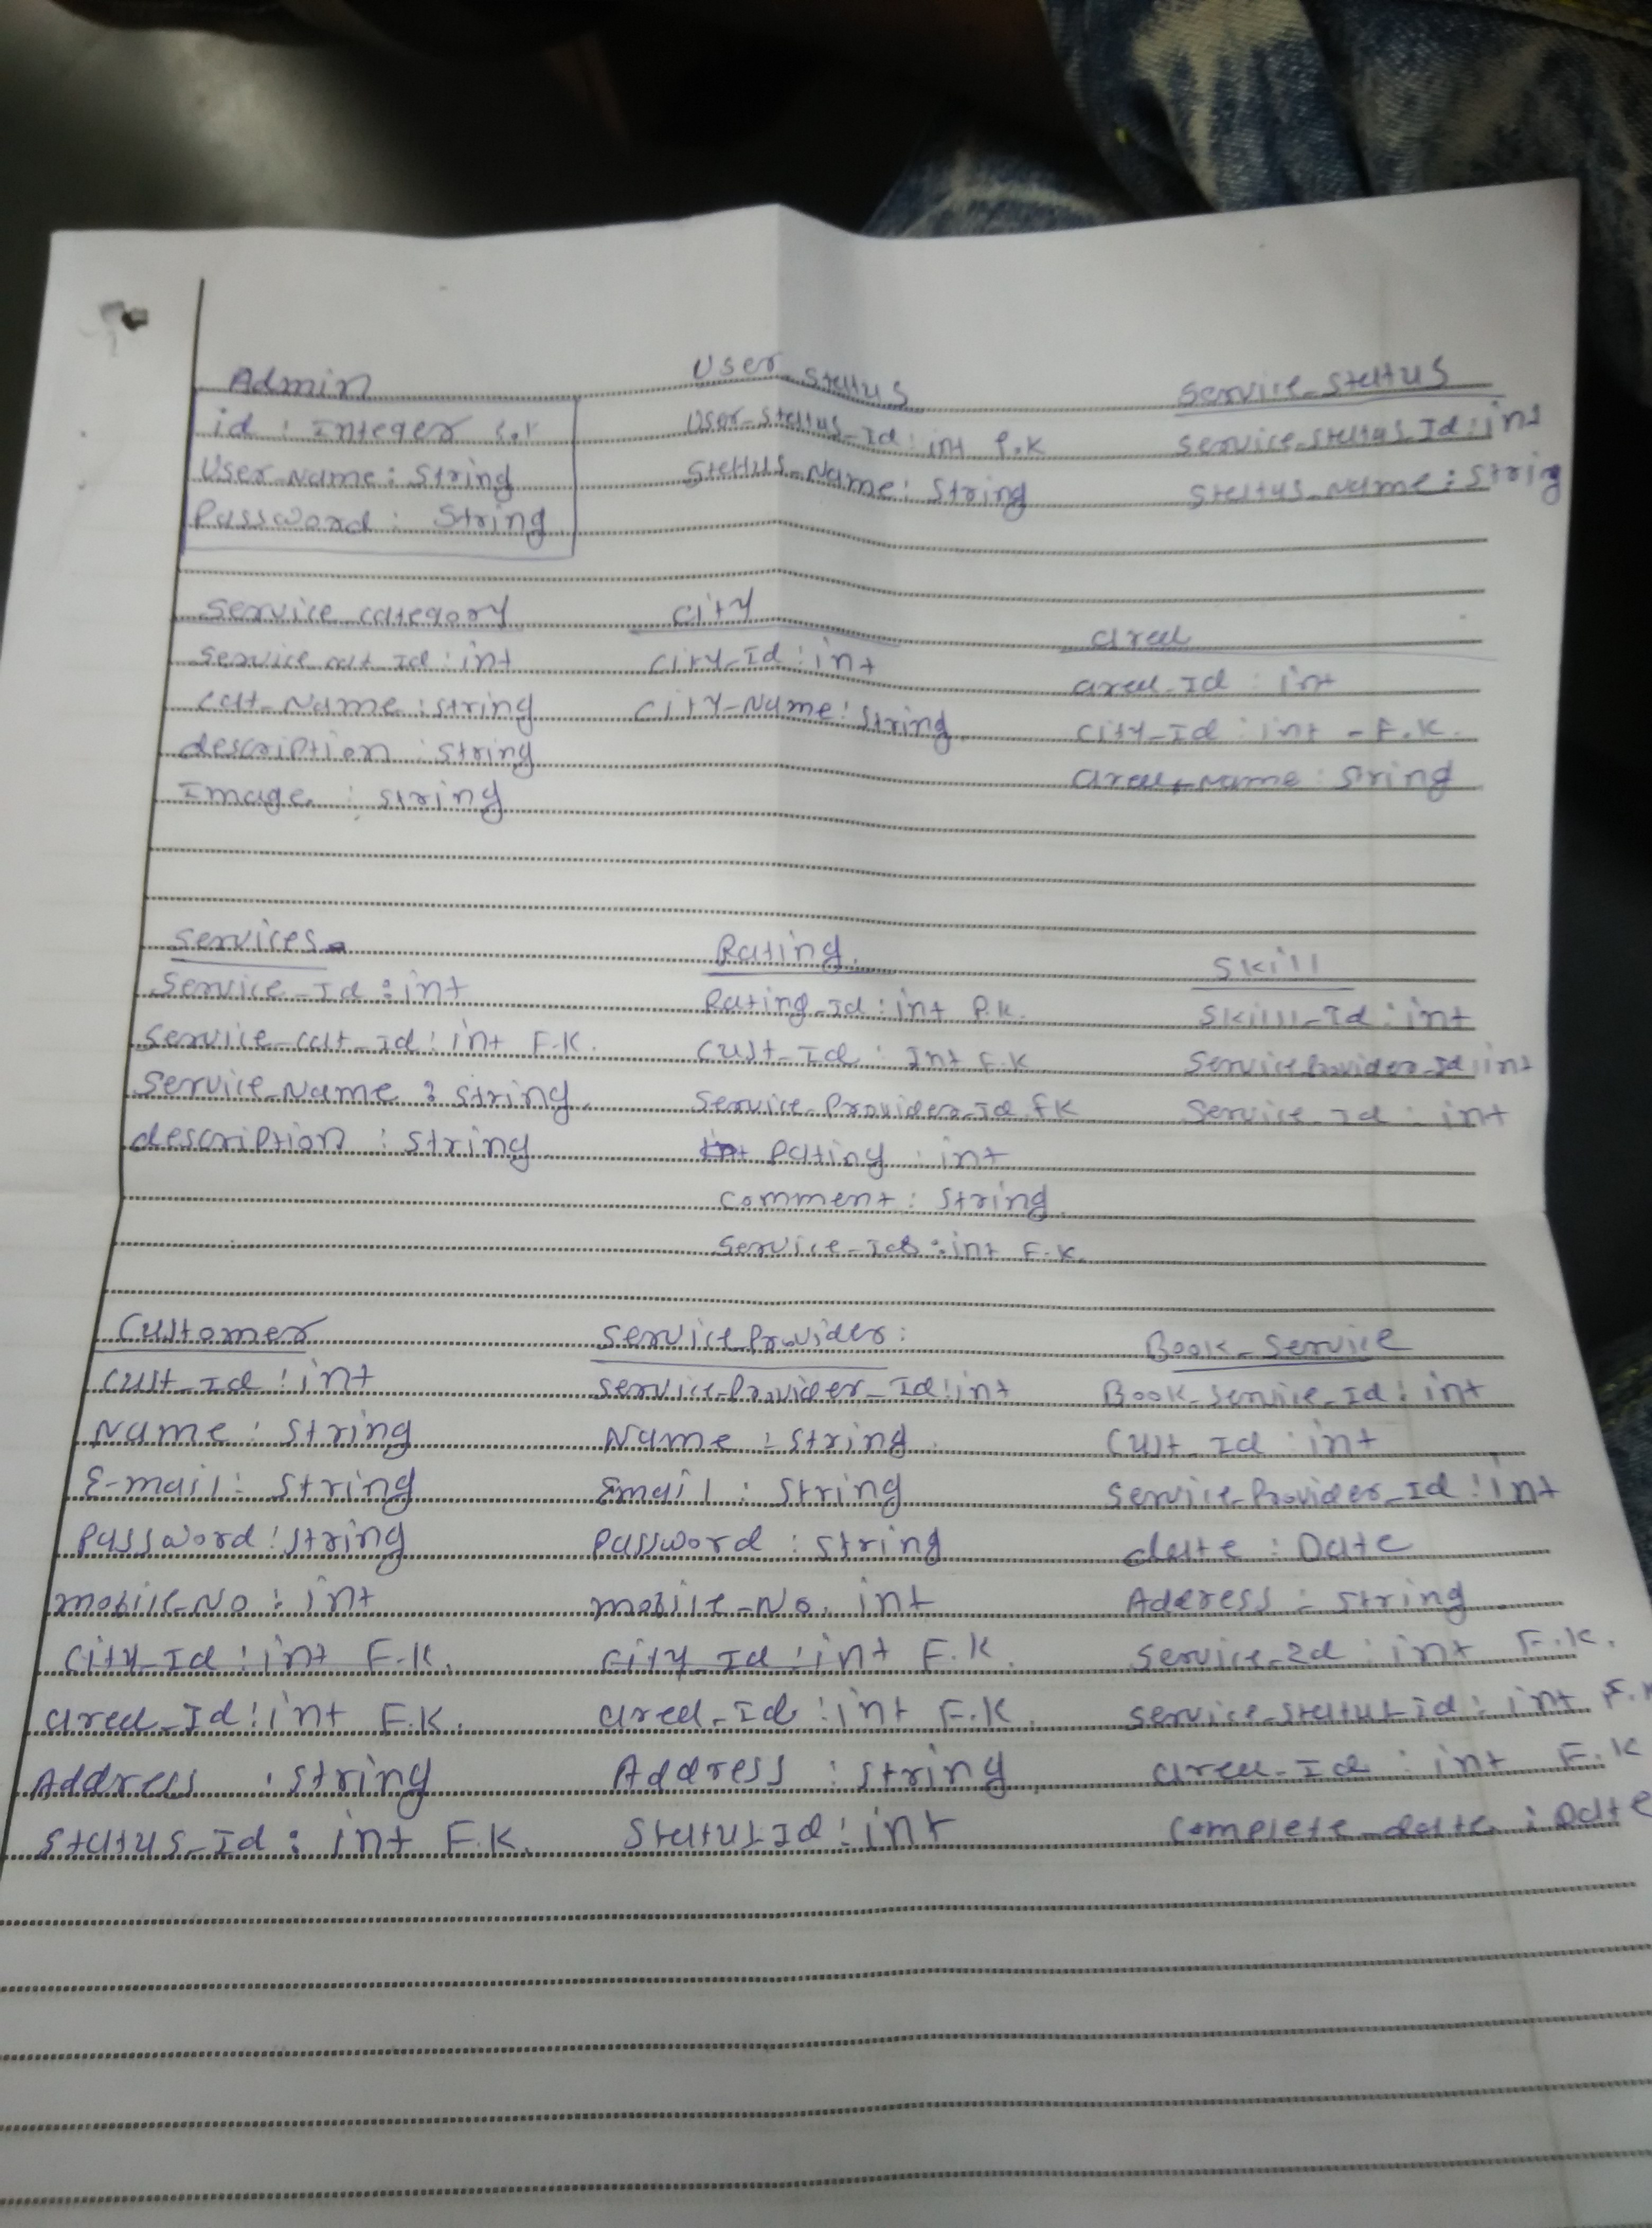 Admin
id : Integer P.K
User_Name : String
Password : String
User_Status
User_Status_Id : int P.K
Status_Name : String
Service_Status
Service_Status_Id : int
Status_Name : String
Service_Category
Service_cat_Id : int
Cat_Name : String
description : String
Image : String
City
City_Id : int
City_Name : String
area
area_Id : int
City_Id : int - F.K.
area_Name : String
Services
Service_Id : int
Service_cat_Id : int F.K.
Service_Name : String
description : String
Rating
Rating_Id : int P.K.
Cust_Id : Int F.K
Service_Provider_Id F.K
Rating : int
Comment : String
Service_Id : int F.K.
Skill
Skill_Id : int
Service_Provider_Id : int
Service_Id : int
Customer
Cust_Id : int
Name : String
E-mail : String
Password : String
mobile_No : int
City_Id : int F.K.
area_Id : int F.K.
Address : String
Status_Id : int F.K.
Service_Provider :
Service_Provider_Id : int
Name : String
Email : String
Password : String
mobile_No. int
City_Id : int F.K.
area_Id : int F.K.
Address : String
Status_Id : int
Book_Service
Book_Service_Id : int
Cust_Id : int
Service_Provider_Id : int
date : Date
Address : String
Service_Id : int F.K.
Service_Status_id : int F.K
area_Id : int F.K
Complete_date : Date